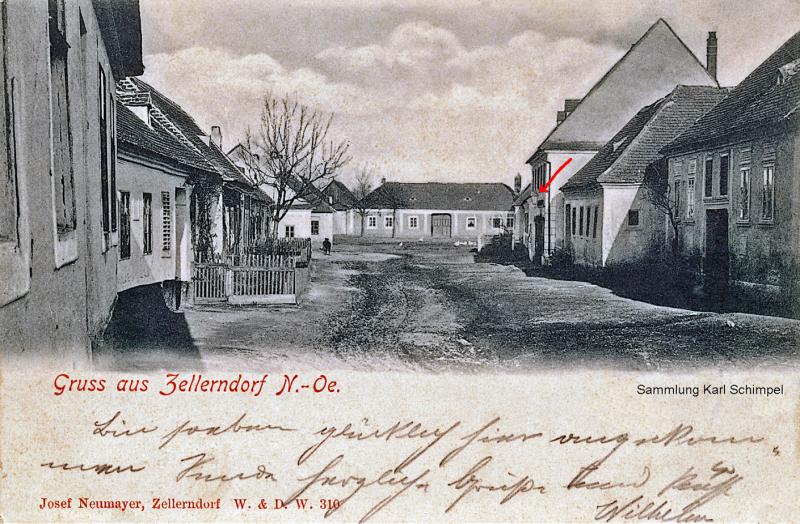 Gruss aus Zellerndorf N.-Oe.
Sammlung Karl Schimpel
Bin soeben glücklich hier angekom„
men Sende herzliche Grüße und Kuß
Wilhelm
Josef Neumayer, Zellerndorf W. & D. W. 310